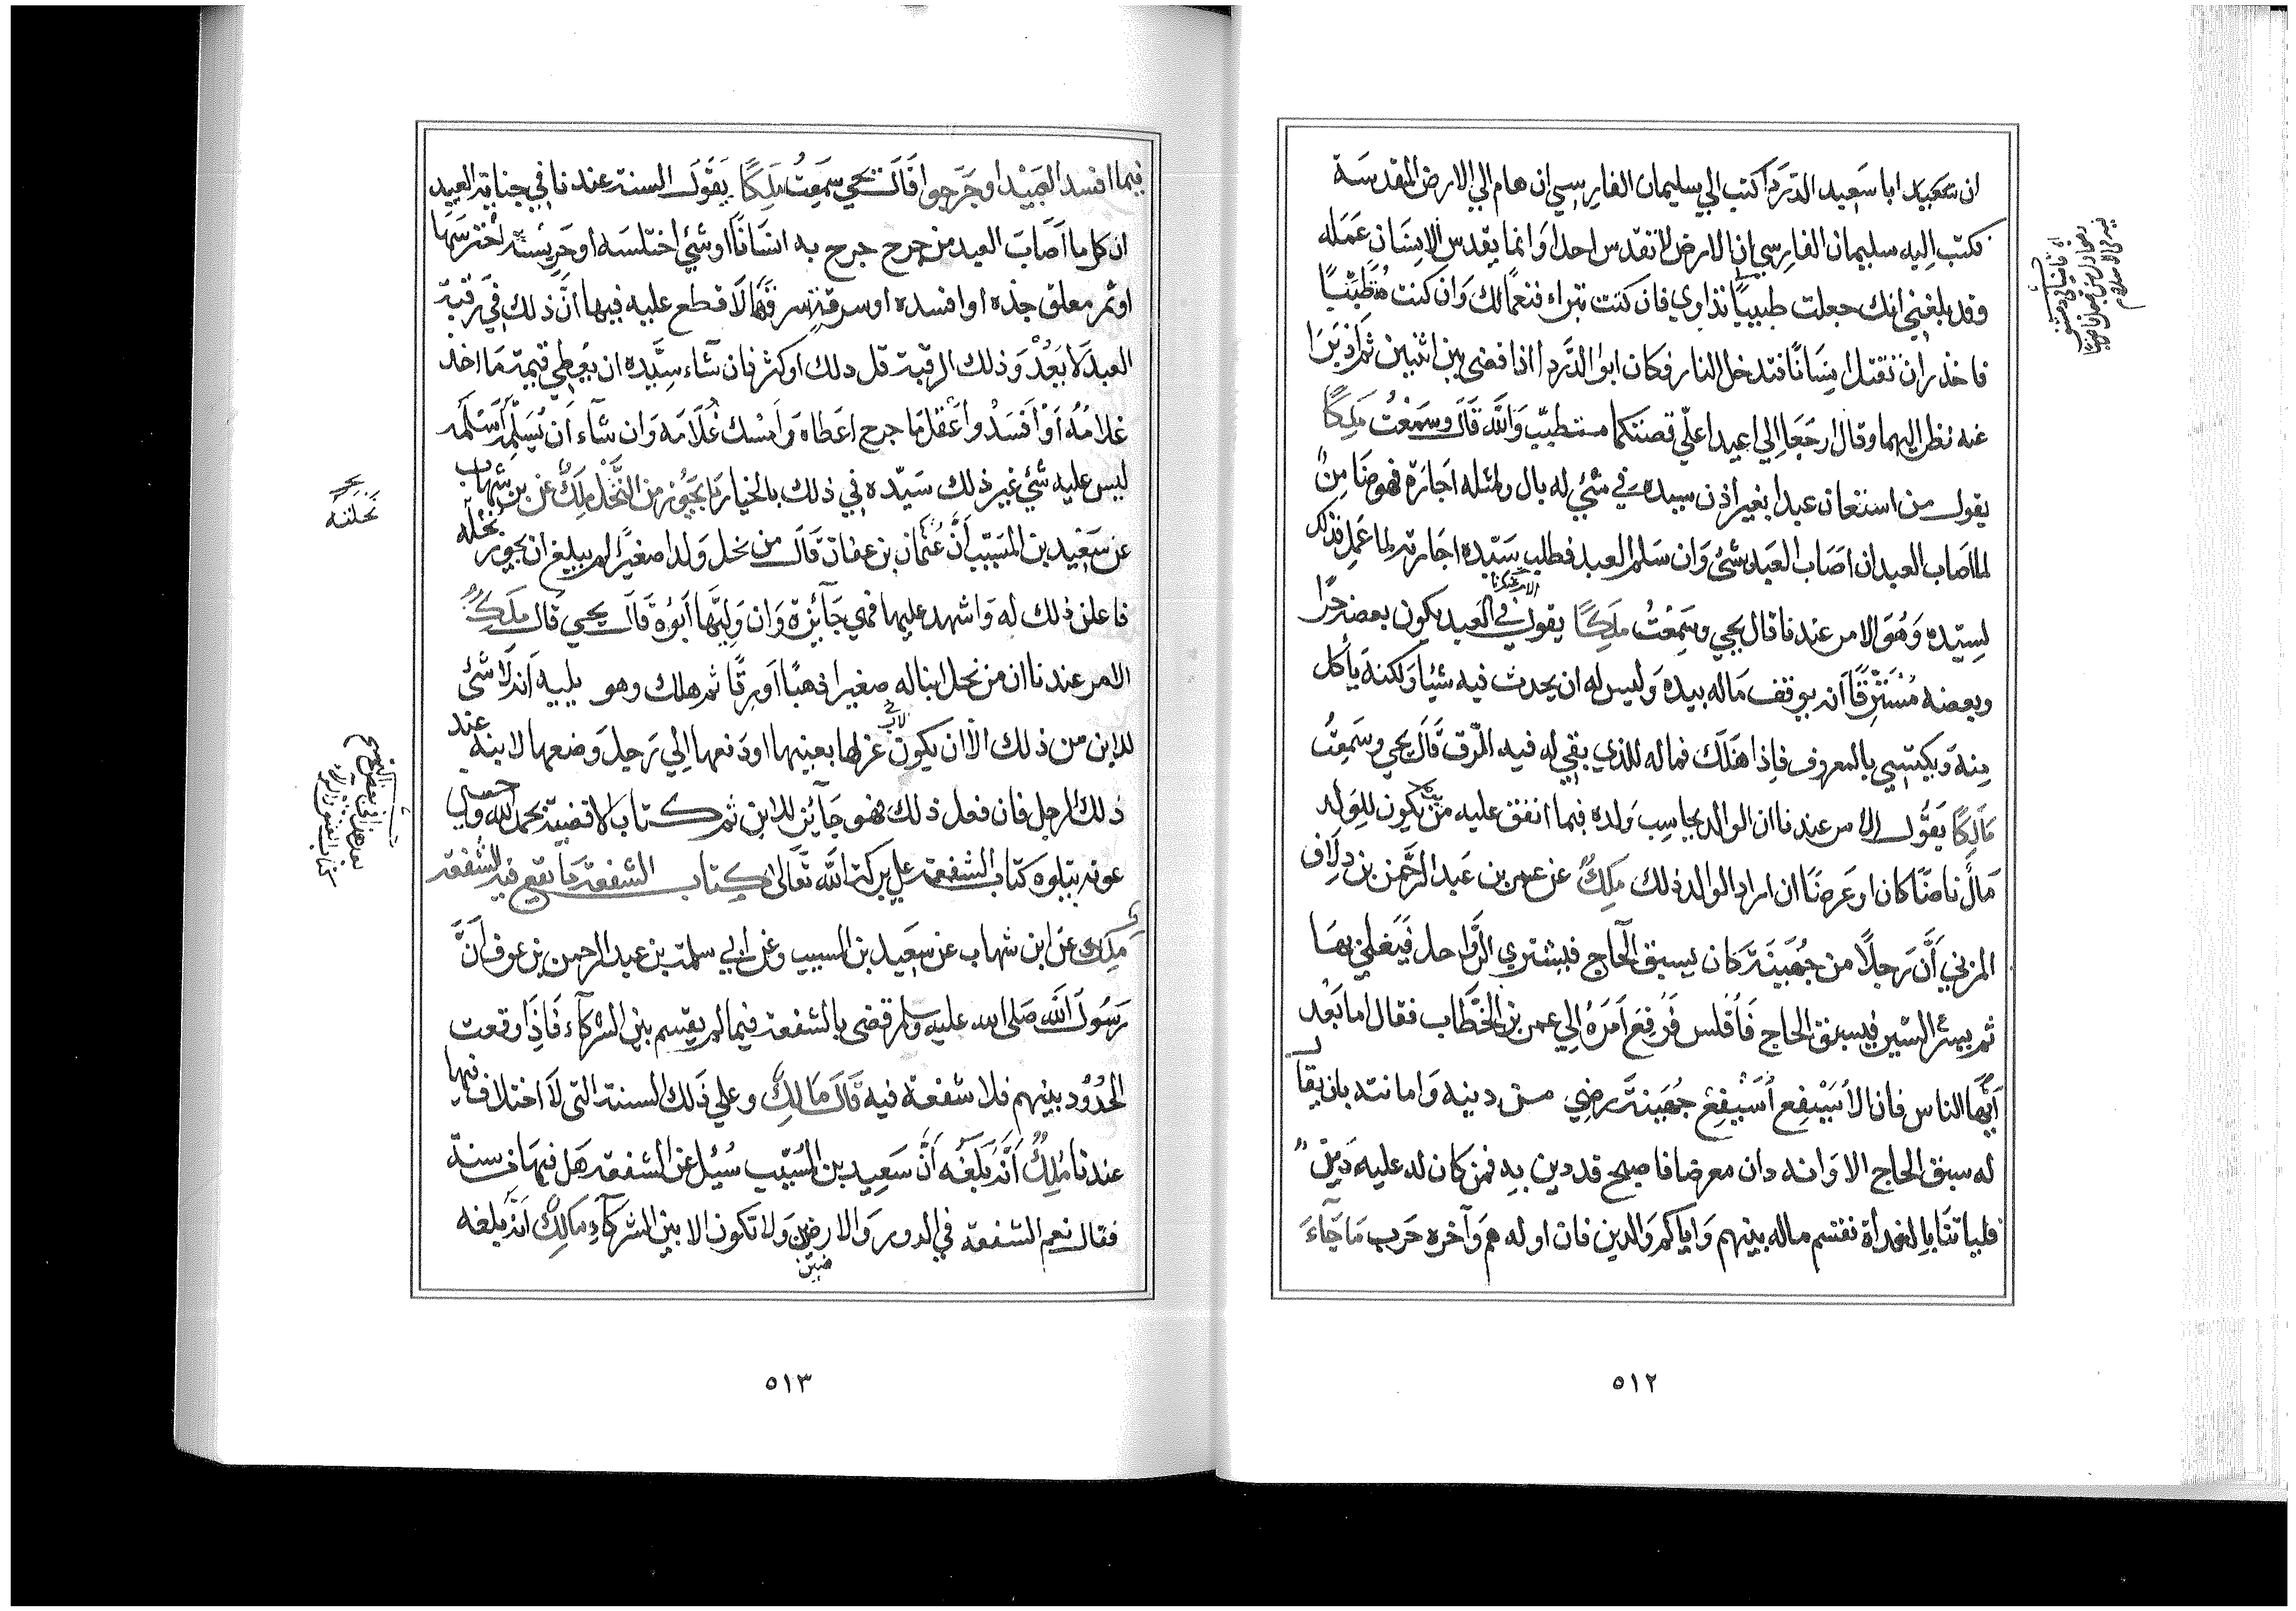 ان سعيد ابا سعيد الدرداء كتب الي سليمان الفارسي ان هلم الي الارض المقدسة
فكتب اليه سليمان الفارسي ان الارض لا تقدس احدا وانما يقدس الانسان عمله
وقد بلغني انك جعلت طبيبا تداوي فان كنت تبراء فنعما لك وان كنت متطببا
فاحذر ان تقتل انسانا فتدخل النار فكان ابوا الدرداء اذا قضي بين اثنين ثم ادبرا
عنه نظر اليهما وقال ارجعا الي اعيدا علي قصتكما متطبب والله قال وسمعت ملكا
يقول من استعان عبدا بغير اذن سيده في شئي له بال ولمثله اجارة فهو ضامن
لما اصاب العبد ان اصاب العبد شئ وان سلم العبد فطلب سيده اجارته لما عمل فذلك
لسيده وهو الامر عندنا قال يحيي وسمعت ملكا يقول في العبد يكون بعضه حرا
الامر عندنا
وبعضه مسترقا انه يوقف ماله بيده وليس له ان يحدث فيه شيئا ولكنه يأكل
منه ويكتسي بالمعروف فاذا هلك فماله للذي بقي له فيه الرق قال يحيي وسمعت
مالكا يقول الامر عندنا ان الوالد يحاسب ولده فيما انفق عليه من يكون للولد
مال ناضا كان او عرضا ان اراد الوالد ذلك ملك عن عمر بن عبد الرحمن بن دلاف
المزني ان رجلا من جهينة كان يسبق الحاج فيشتري الرواحل فيغلي بها
ثم يسرع السير فيسبق الحاج فأفلس فرفع امره الي عمر بن الخطاب فقال اما بعد
ايها الناس فان الاسيفع أسيفع جهينة رضي من دينه وامانته بان يقا
له سبق الحاج الا وانه دان معرضا فاصبح قد دين به فمن كان له عليه دين
فلياتنا بالغدأة نقسم ماله بينهم واياكم والدين فان اوله هم وآخره حرب ما جاء
٥١٢
فيما افسد العبيد او جرحوا قال يحيي سمعت ملكا يقول السنة عندنا في جناية العبيد
ان كل ما اصاب العبد من جرح جرح به انسانا او شئ اختلسه او حريسة احترسها
او ثمر معلق جذه او افسده او سرقة سرقها لا قطع عليه فيها ان ذلك في رقبة
العبد لا يعد وذلك الرقبة قل ذلك او كثر فان شاء سيده ان يعطي قيمة ما اخذ
غلامه أو أفسد واعقل ما جرح اعطاه وامسك غلامه وان شاء ان يسلمه أسلمه
ليس عليه شئ غير ذلك سيده في ذلك بالخيار ما يجوز من النحل ملك عن بن شهاب
عن سعيد بن المسيب ان عثمان بن عفان قال من نحل ولدا صغيرا لم يبلغ ان يحوز نحله
نحلته
فاعلن ذلك له واشهد عليها فهي جائزة وان وليها ابوه قال يحيي قال ملك
الامر عندنا ان من نحل ابنا له صغيرا ذهبا او رقا ثم هلك وهو يليه انه لا شئ
للابن من ذلك الا ان يكون عزلها بعينها او دفعها الي رجل وضعها لابنه عند
الاب
ذلك الرجل فان فعل ذلك فهو جائز للابن ثم كتاب الاقضية بحمد الله وحسن
عونه يتلوه كتاب الشفعة علي بركة الله تعالى كتاب الشفعة ما تقع فيه الشفعة
ملك عن ابن شهاب عن سعيد بن المسيب وعن ابي سلمة بن عبد الرحمن بن عوف أن
رسول الله صلى الله عليه وسلم قضى بالشفعة فيما لم يقسم بين الشركاء فاذا وقعت
الحدود بينهم فلا شفعة فيه قال مالك وعلي ذلك السنة التي لا اختلاف فيها
عندنا ملك انه بلغه أن سعيد بن المسيب سئيل عن الشفعة هل فيها من سنة
فقال نعم الشفعة في الدور والارضين ولا تكون الا بين الشركاء مالك انه بلغه
ضين
٥١٣